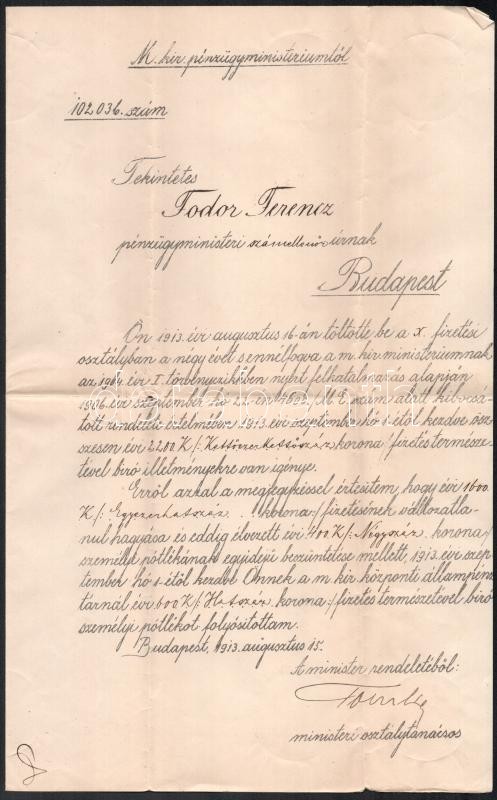 M. kir. pénzügyministeriumtól
102.036. szám
Tekintetes
Todor Ferencz
pénzügyministeri számellenőr úrnak
Budapest
Ön 1913. évi augusztus 16-án töltötte be a X. fizetési
osztályban a négy évet s ennélfogva a m. kir. ministeriumnak
az 1904. évi I. törvényczikkben nyert felhatalmazás alapján
1906. évi szeptember hó szám alatt kibocsá-
tott rendelete értelmében 1913. évi szeptember hó 1-étől kezdve ösz-
szesen évi 2200 K /: Kettőezerkettőszáz korona :/ fizetés természe-
tével bíró illetményekre van igénye.
Erről azzal a megjegyzéssel értesítem, hogy évi 1600
K /: Egyezerhatszáz korona :/ fizetésének változatla-
nul hagyása és eddig élvezett évi 400 K /: Négyszáz korona :/
személyi pótlékának egyidejű beszüntetése mellett, 1913. évi szep-
tember hó 1-étől kezdve Önnek a m. kir. központi állampénz-
tárnál évi 600 K /: Hatszáz korona :/ fizetés természetével bíró
személyi pótlékot folyósítottam.
Budapest, 1913. augusztus 15.
A minister rendeletéből:
ministeri osztálytanácsos